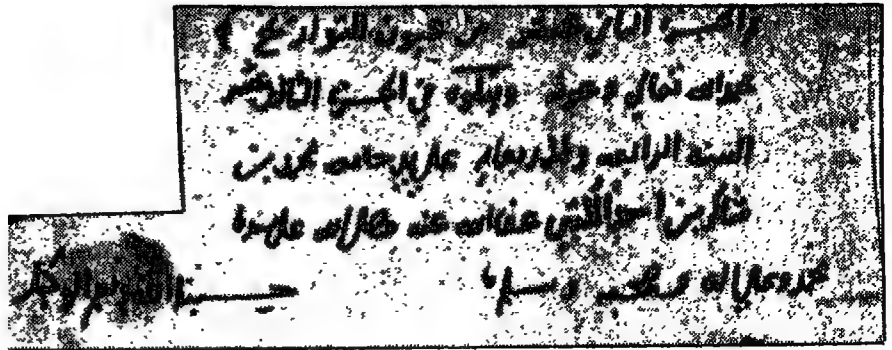 الجزء الثاني عشر من عيون التواريخ
بحمد الله تعالى وعونه ويتلوه في الجزء الثالث عشر
السنة الرابعة والاربعماية على يد جامعه محمد بن
شاكر بن احمد الكتبي عفا الله عنه وصلى الله على سيدنا
محمد وعلى اله وصحبه وسلم
حسبنا الله ونعم الوكيل